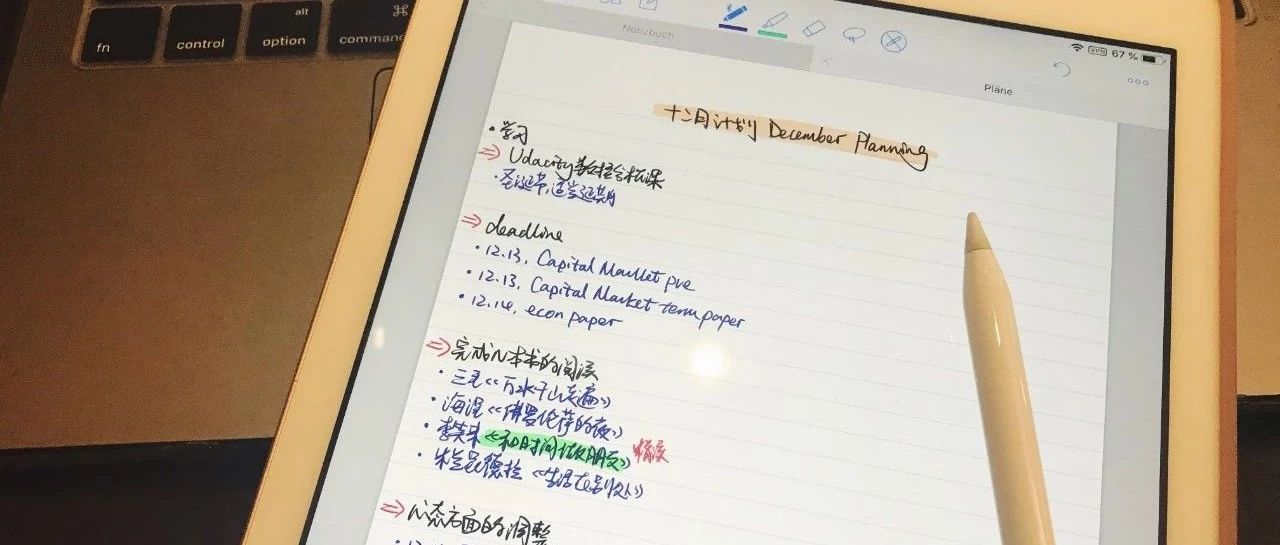 alt
⌘
fn
control
option
command
VPN 67 %
Notizbuch
Pläne
十二月计划 December Planning
• 学习
⇒ Udacity数据分析课
• 圣诞节,适当延期
⇒ deadline
• 12.13, Capital Market pre
• 12.13, Capital Market term paper
• 12.14, econ paper
⇒ 完成N本书的阅读
• 三毛《万水千山走遍》
• 海涅《佛罗伦萨的夜》
• 李笑来《和时间做朋友》 精读
• 米兰昆德拉《生活在别处》
⇒ 心态方面的调整